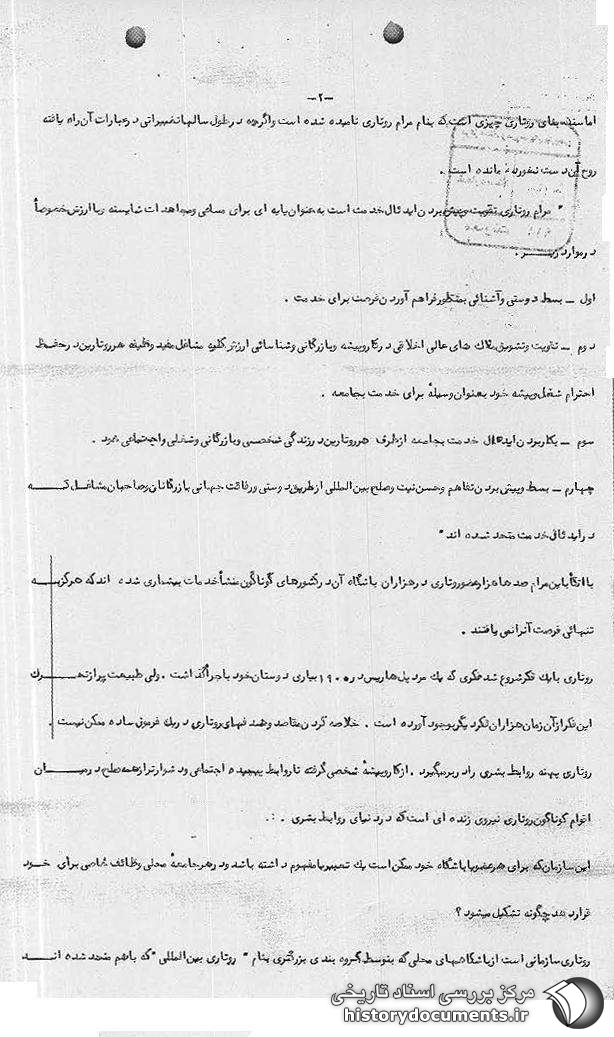 -۲-
اما سند بقای روتاری چیزی است که بنام مرام روتاری نامیده شده است واگرچه در طول سالها تغییراتی در عبارات آن راه یافته
روح آن دست نخورده مانده است .
" مرام روتاری تقویت وپیش بردن ایدئال خدمت است به عنوان پایه ای برای مساعی ومجاهدات شایسته وبا ارزش خصوصاً
در موارد زیر .
اول ــ بسط دوستی وآشنائی بمنظور فراهم آوردن فرصت برای خدمت .
دوم ــ تقویت وتشویق ملاک های عالی اخلاقی در کار وپیشه وبازرگانی وشناسائی ارزش کلیه مشاغل مفید وظیفه هر روتارین در حفظ
احترام شغل وپیشه خود بعنوان وسیلهٔ برای خدمت بجامعه .
سوم ــ بکار بردن ایدئال خدمت بجامعه از طرف هر روتارین در زندگی شخصی وبازرگانی وشغلی واجتماعی خود .
چهارم ــ بسط وپیش بردن تفاهم وحسن نیت وصلح بین المللی از طریق دوستی ورفاقت جهانی بازرگانان وصاحبان مشاغل که
در ایدئال خدمت متحد شده اند "
با اتکأ باین مرام صدها هزار عضو روتاری در هزاران باشگاه آن در کشورهای گوناگون منشأ خدمات بیشماری شده اند که هرگز به
تنهائی فرصت آنرا نمی یافتند .
روتاری بایك فکر شروع شد فکری که یك مرد پل هاریس در ۱۹۰۵ بیاری دوستان خود باجرا گذاشت . ولی طبیعت پر از تحرك
این فکر از آن زمان هزاران فکر دیگر بوجود آورده است . خلاصه کردن مقاصد وهدفهای روتاری در یك فرمول ساده ممکن نیست .
روتاری پهنه روابط بشری را در برمیگیرد . از کار وپیشهٔ شخصی گرفته تا روابط پیچیده اجتماعی ودشوارتر از همه صلح در میان
اقوام گوناگون روتاری نیروی زنده ای است که در دنیای روابط بشری . . .
این سازمان که برای هر عضو یا باشگاه خود ممکن است یك تعبیر یا مفهوم داشته باشد ودر هر جامعهٔ محلی وظائف خاصی برای خود
قرار دهد چگونه تشکیل میشود ؟
روتاری سازمانی است از باشگاههای محلی که بتوسط گروه بندی بزرگتری بنام " روتاری بین المللی " که باهم متحد شده اند
مرکز بررسی اسناد تاریخی
historydocuments.ir